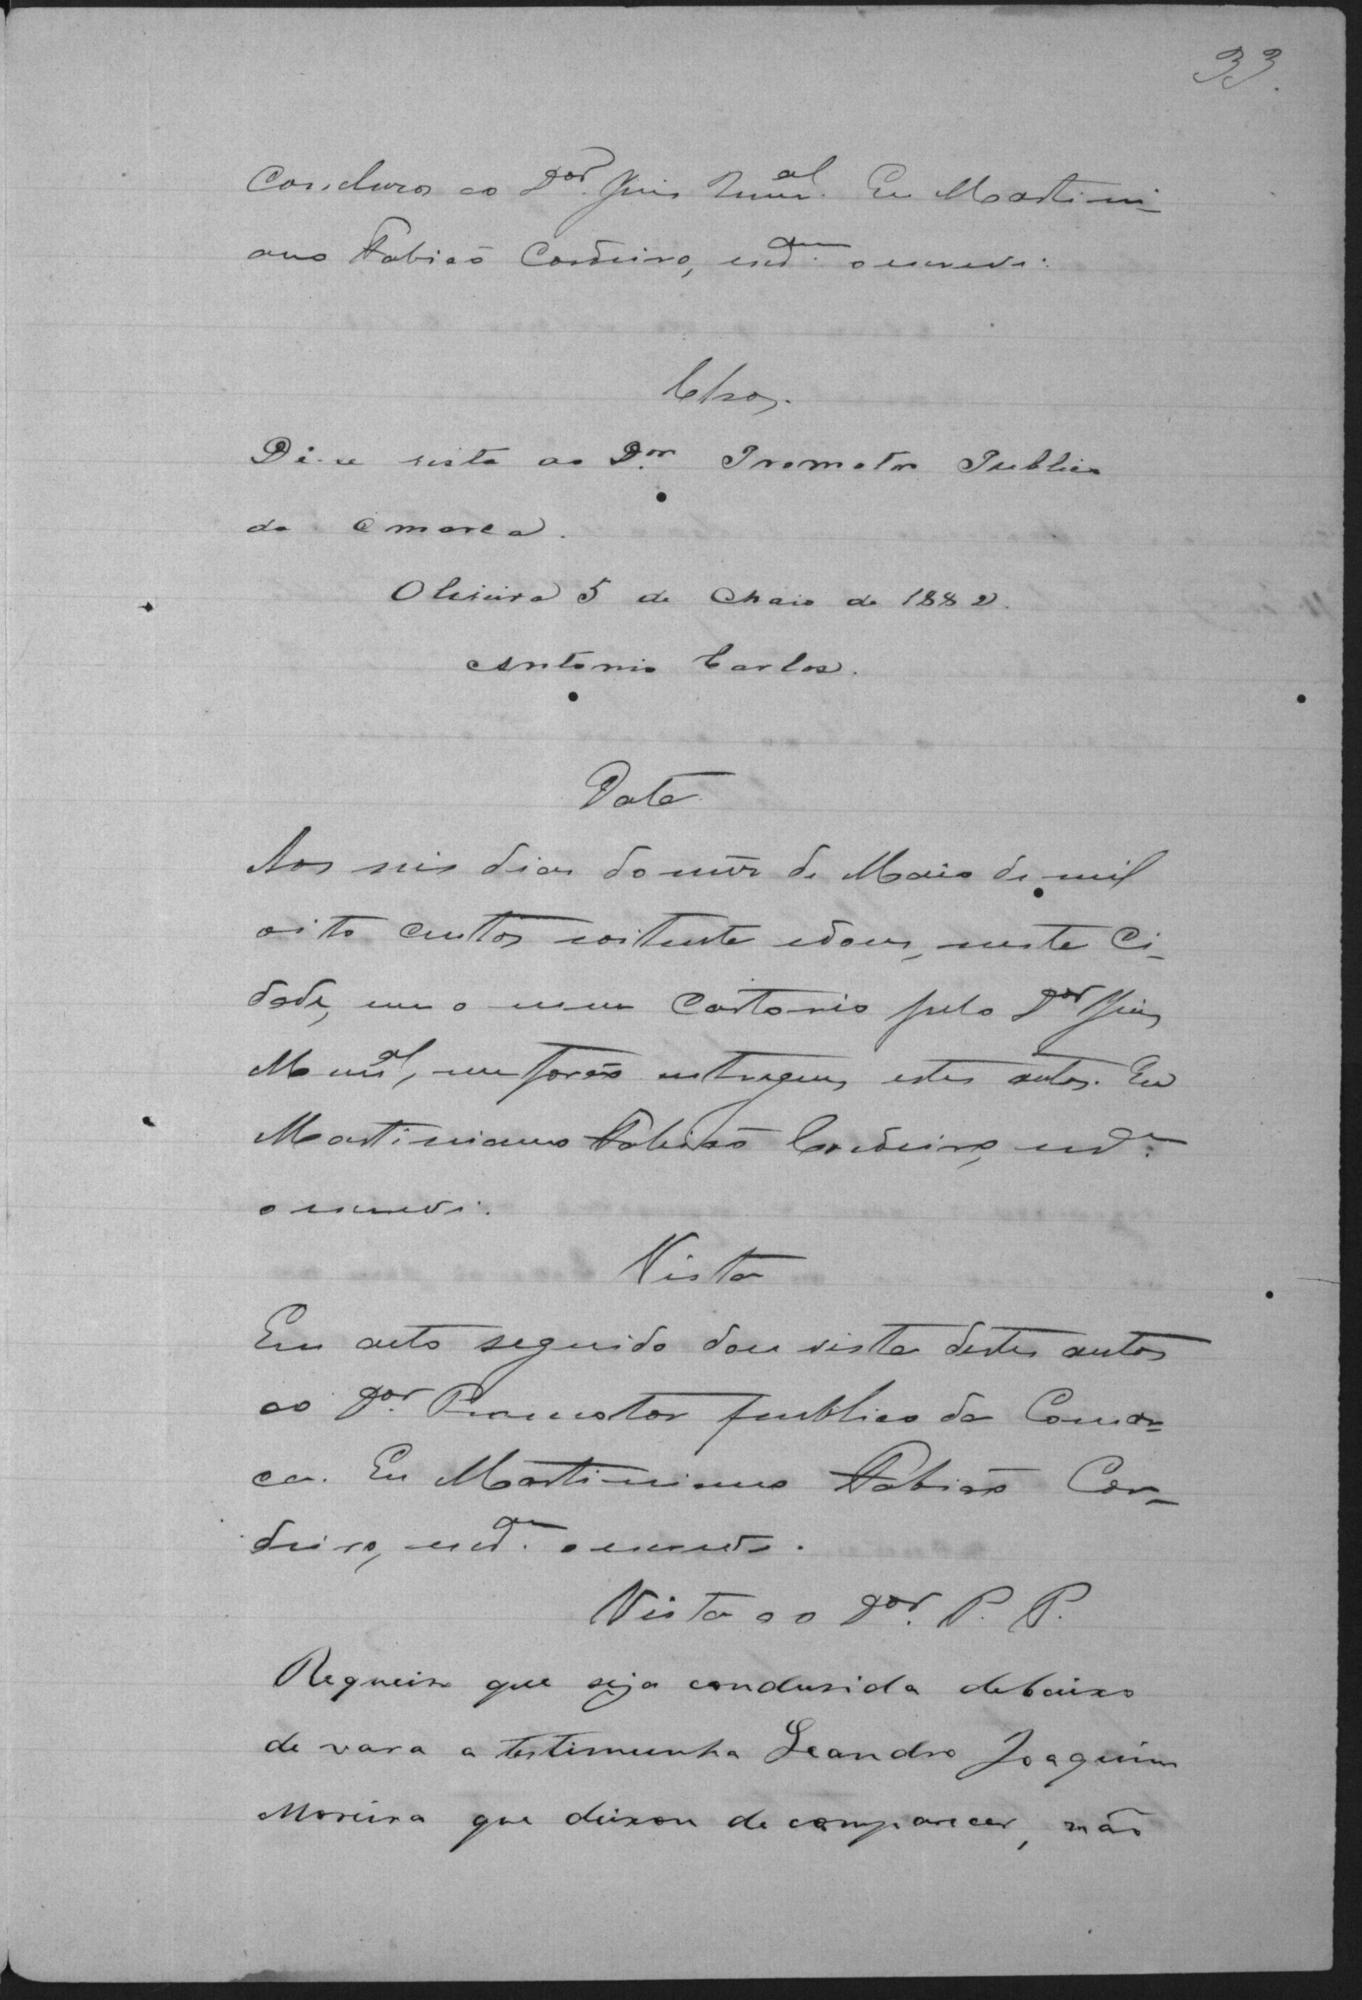 33.
Conclusos ao Dor. Juiz Munal. Eu Martini-
ano Fabião Cordeiro, escam. o escrevi.
Clsos.
Dê-se vista ao Dor Promotor Publico
da Comarca.
Oliveira 5 de Maio de 1882.
Antonio Carlos.
Data
Aos seis dias do mês de Maio de mil
oito centos e oitenta e dous, nesta Ci-
dade, em o meu Cartorio pelo Dor Juiz
Munal, me forão entregues estes autos. Eu
Martiniano Fabião Cordeiro, escam.
o escrevi.
Vista
Em acto seguido dou vista destes autos
ao Dor. Promotor publico da Comar-
ca. Eu Martiniano Fabião Cor-
deiro, escam. o escrevi.
Vista ao Dor. P. P.
Requeiro que seja condusida debaixo
de vara a testimunha Leandro Joaquim
Moreira que deixou de comparecer, não